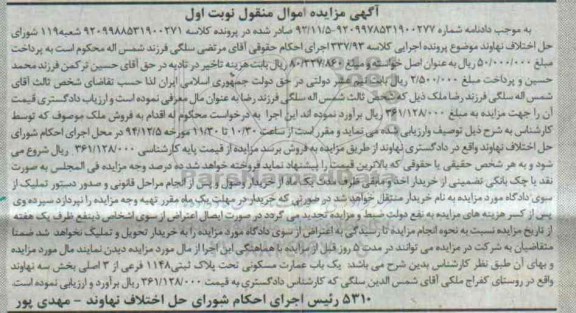 آگهی مزایده اموال منقول نوبت اول
به موجب دادنامه شماره ۹۲۰۹۹۷۸۵۳۱۹۰۰۲۷۷-۹۲/۱۱/۵ صادر شده در پرونده کلاسه ۹۲۰۹۹۸۸۵۳۱۹۰۰۲۷۱ شعبه۱۱۹ شورای
حل اختلاف نهاوند موضوع پرونده اجرایی کلاسه ۳۳۷/۹۳ اجرای احکام حقوقی آقای مرتضی سلگی فرزند شمس اله محکوم است به پرداخت
مبلغ ۵۰/۰۰۰/۰۰۰ ریال به عنوان اصل خواسته و مبلغ ۸۰/۲۳۷/۸۶۰ ریال بابت هزینه تاخیر در تادیه در حق آقای حسین ترکمن فرزند محمد
حسین و پرداخت مبلغ ۲/۵۰۰/۰۰۰ ریال بابت نیم عشر دولتی در حق دولت جمهوری اسلامی ایران لذا حسب تقاضای شخص ثالث آقای
شمس اله سلگی فرزند رضا ملک ذیل که شخص ثالث شمس اله سلگی فرزند رضا به عنوان مال معرفی نموده است و ارزیاب دادگستری قیمت
آن را جهت مزایده به مبلغ ۳۶۱/۱۲۸/۰۰۰ ریال برآورد نموده اند این اجرا به درخواست محکوم له اقدام به فروش ملک موصوف که توسط
کارشناس به شرح ذیل توصیف وارزیابی شده می نماید و مقرر است از ساعت ۱۰/۳۰ تا ۱۱/۳۰ مورخه ۹۴/۱۲/۵ در محل اجرای احکام شورای
حل اختلاف نهاوند واقع در دادگستری نهاوند از طریق مزایده به فروش برسد مزایده از قیمت پایه کارشناسی ۳۶۱/۱۲۸/۰۰۰ ریال شروع می
شود و به هر شخص حقیقی یا حقوقی که بالاترین قیمت را پیشنهاد نماید فروخته خواهد شد ده درصد وجه مزایده فی المجلس به صورت
نقد یا چک بانکی تضمینی از خریدار اخذ و مابقی ظرف مدت یک ماه از خریدار وصول و پس از انجام مراحل قانونی و صدور دستور تملیک از
سوی دادگاه مورد مزایده به نام خریدار منتقل خواهد شد در صورتی که خریدار در مهلت یک ماه مقرر تهیه وجه مزایده را نپردازد سپرده وی
پس از کسر هزینه های مزایده به نفع دولت ضبط و مزایده تجدید می گردد در صورت ایصال اعتراض از سوی اشخاص ذینفع ظرف یک هفته
از تاریخ مزایده نسبت به نحوه انجام مزایده تا رسیدگی به اعتراض از سوی دادگاه مورد مزایده را به خریدار تحویل و تملیک نخواهد شد ضمنا
متقاضیان به شرکت در مزایده می توانند در مدت ۵ روز قبل از مزایده با هماهنگی این اجرا از مال مورد مزایده دیدن نمایند مال مورد مزایده
و بهای آن طبق نظر کارشناس بدین شرح می باشد: یک باب عمارت مسکونی تحت پلاک ثبتی۱۱۴۸ فرعی از ۳ اصلی بخش سه نهاوند
واقع در روستای کفراج ملکی آقای شمس الدین سلگی که کارشناس دادگستری به قیمت ۳۶۱/۱۲۸/۰۰۰ ریال برآورد و ارزیابی نموده است
۵۳۱۰ رئیس اجرای احکام شورای حل اختلاف نهاوند - مهدی پور